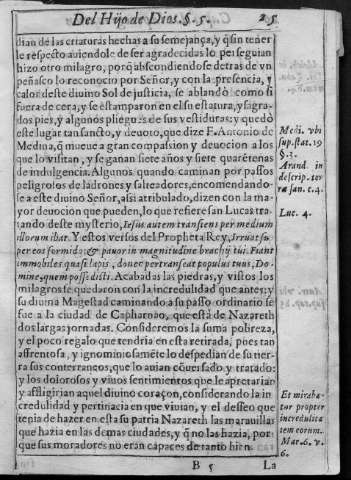 Del Hijo de Dios. §. 5.
25
dian de las criaturas hechas a su semejança, y q̃ sin tener
le respecto auiendole de ser agradecidas lo perseguian
hizo otro milagro, porq̃ abscondiendose detras de vn
peñasco lo reconocio por Señor, y con la presencia, y
calor deste diuino Sol de justicia, se ablandò como si
fuera de cera, y se estamparon en el su estatura, y sagra-
dos pies, y algunos pliegues de sus vestiduras: y quedò
este lugar tan sancto, y deuoto, que dize F. Antonio de
Medina, q̃ mueue a gran compassion y deuocion a los
que lo visitan, y se ganan siete años y siete quarẽtenas
de indulgencia. Algunos quando caminan por passos
peligrosos de ladrones, y salteadores, encomendando-
se a este diuino Señor, assi atribulado, dizen con la ma-
yor deuocion que pueden, lo que refiere san Lucas tra-
tando deste mysterio, Iesus autem transiens per medium
illorum ibat. Y estos versos del Propheta Rey, Irruat su
per eos formido: & pauor in magnitudine brachij tui. Fiant
immobiles quasi lapis, donec pertranseat populus tuus, Do-
mine, quem possedisti. Acabadas las piedras, y vistos los
milagros se quedaron con la incredulidad que antes: y
su diuina Magestad caminando a su passo ordinario se
fue a la ciudad de Capharnao, que està de Nazareth
dos largas jornadas. Consideremos la suma pobreza,
y el poco regalo que tendria en esta retirada, pues tan
affrentosa, y ignominiosamẽte lo despedian de su tier-
ra sus conterraneos, que lo auian cõuersado y tratado:
y los dolorosos y viuos sentimientos que le apretarian
y affligirian aquel diuino coraçon, considerando la in
credulidad y pertinacia en que viuian, y el desseo que
tenia de hazer en esta su patria Nazareth las marauillas
que hazia en las demas ciudades, y q̃ no las hazia, por-
que sus moradores no eran capaces de tanto bien.
B 5
La
Medi. vbi
sup. stat. 19
§. 3.
Arand. in
descrip. ter
ra san. c. 4.
Luc. 4.
Et miraba-
tur propter
incredulita
tem eorum.
Mar. 6. v.
6.